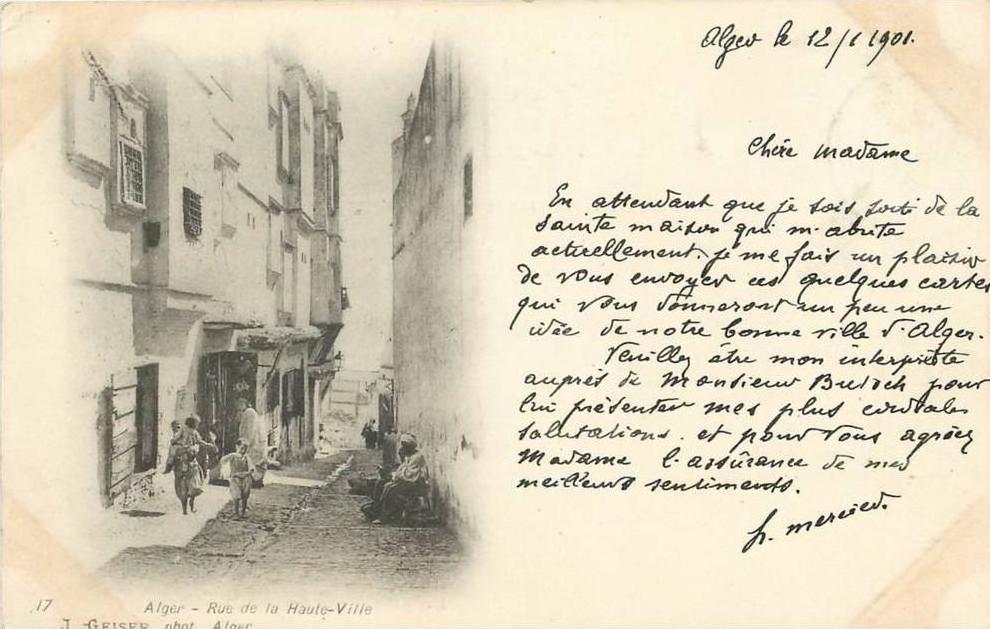 Alger le 12/1 1901.
Chère madame
En attendant que je sois sorti de la
sainte maison qui m'abrite
actuellement, je me fais un plaisir
de vous envoyer ces quelques cartes
qui vous donneront un peu une
idée de notre bonne ville d'Alger.
Veuillez être mon interprète
auprès de Monsieur pour
lui présenter mes plus cordiales
salutations. et pour vous agréez
Madame l'assurance de mes
meilleurs sentiments.
mercier.
17 Alger - Rue de la Haute-Ville
J. GEISER phot. Alger